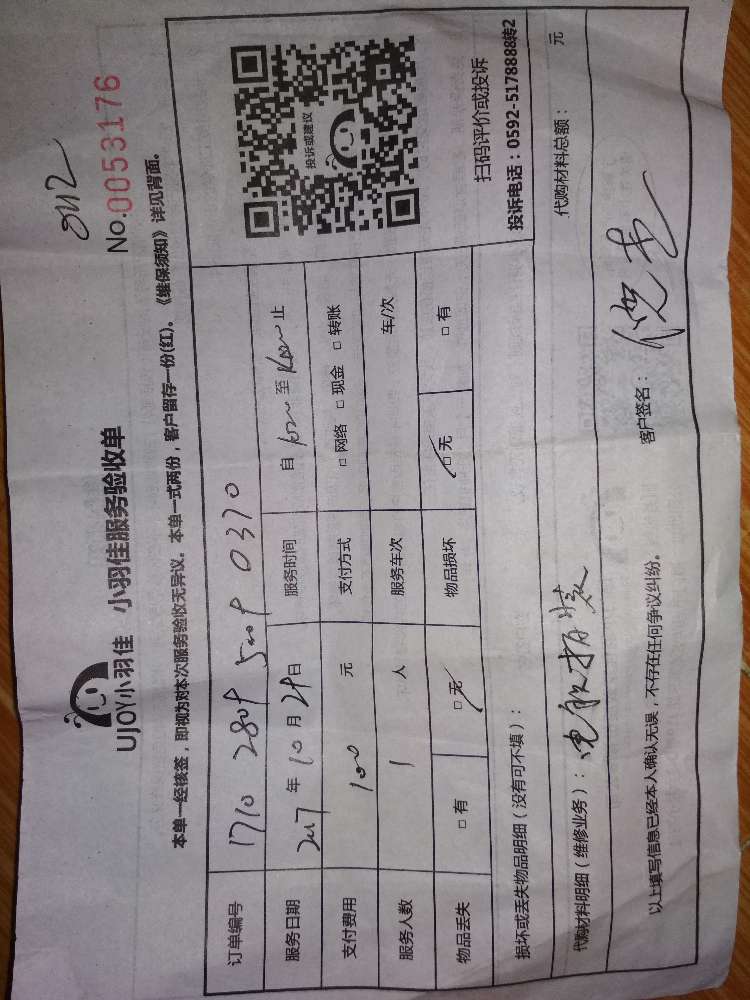 UJOY小羽佳 小羽佳服务验收单
No.0053176
本单一经核签，即视为对本次服务验收无异议。本单一式两份，客户留存一份(红)。《维保须知》详见背面。
订单编号 1710 2809 5009 0370
服务日期 2017年10月29日 服务时间 自 至 止
支付费用 100 元 支付方式 □网络 □现金 □转账
服务人数 1 人 服务车次 车/次
物品丢失 □有 □无 物品损坏 □无 □有
投诉或建议
扫码评价或投诉
投诉电话：0592-5178888转2
损坏或丢失物品明细（没有可不填）：
代购材料明细（维修业务）： 拆装 代购材料总额： 元
以上填写信息已经本人确认无误，不存在任何争议纠纷。 客户签名：